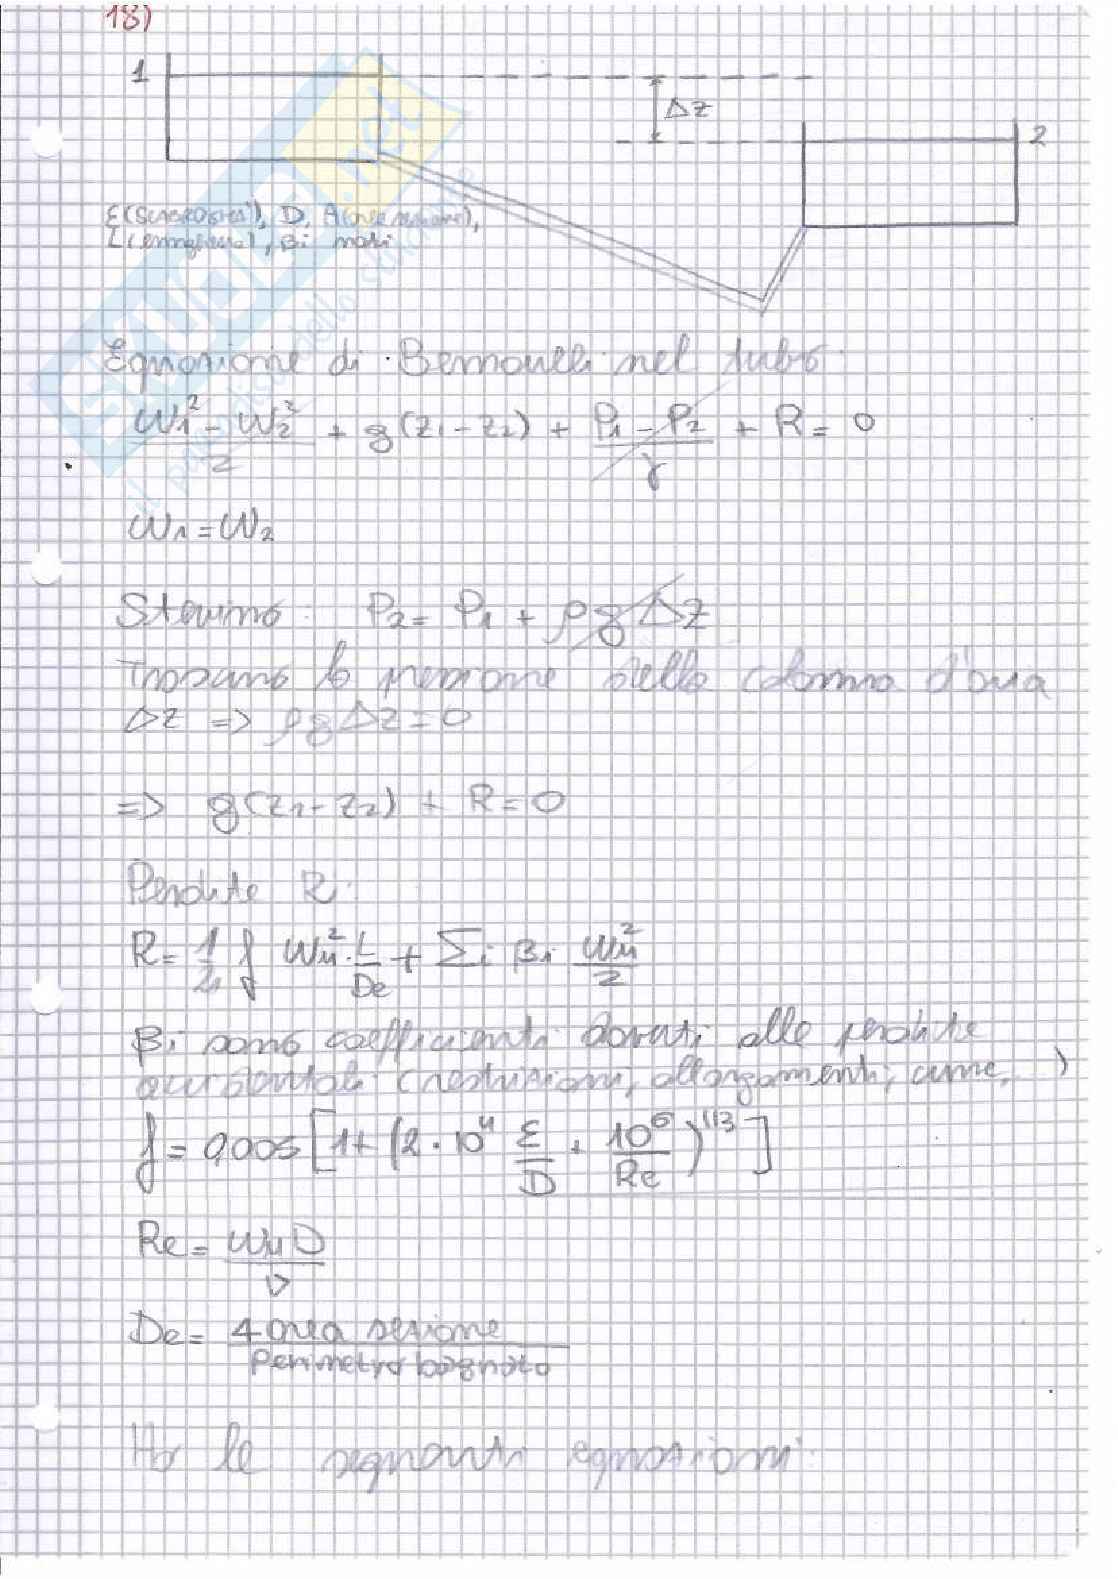 18)
1
Δz
2
ε (SCABROSITA'), D, A (area sezione),
L (lunghezza), βi noti
Equazione di Bernoulli nel tubo:
(w1² - w2²)/2 + g(z1 - z2) + (P1 - P2)/γ + R = 0
w1 = w2
Stevino: P2 = P1 + ρgΔz
Trascuro la pressione della colonna d'aria
Δz => ρgΔz = 0
=> g(z1 - z2) + R = 0
Perdite R:
R = 1/2 f wm² · L/De + Σi βi wm²/2
βi sono coefficienti dovuti alle perdite
accidentali (restrizioni, allargamenti, curve, )
f = 0,005 [1 + (2·10⁴ ε/D + 10⁶/Re)^1/3]
Re = wm D/ν
De = 4 area sezione/Perimetro bagnato
Ho le seguenti equazioni:
SKUOLA.net
il paradiso dello studente